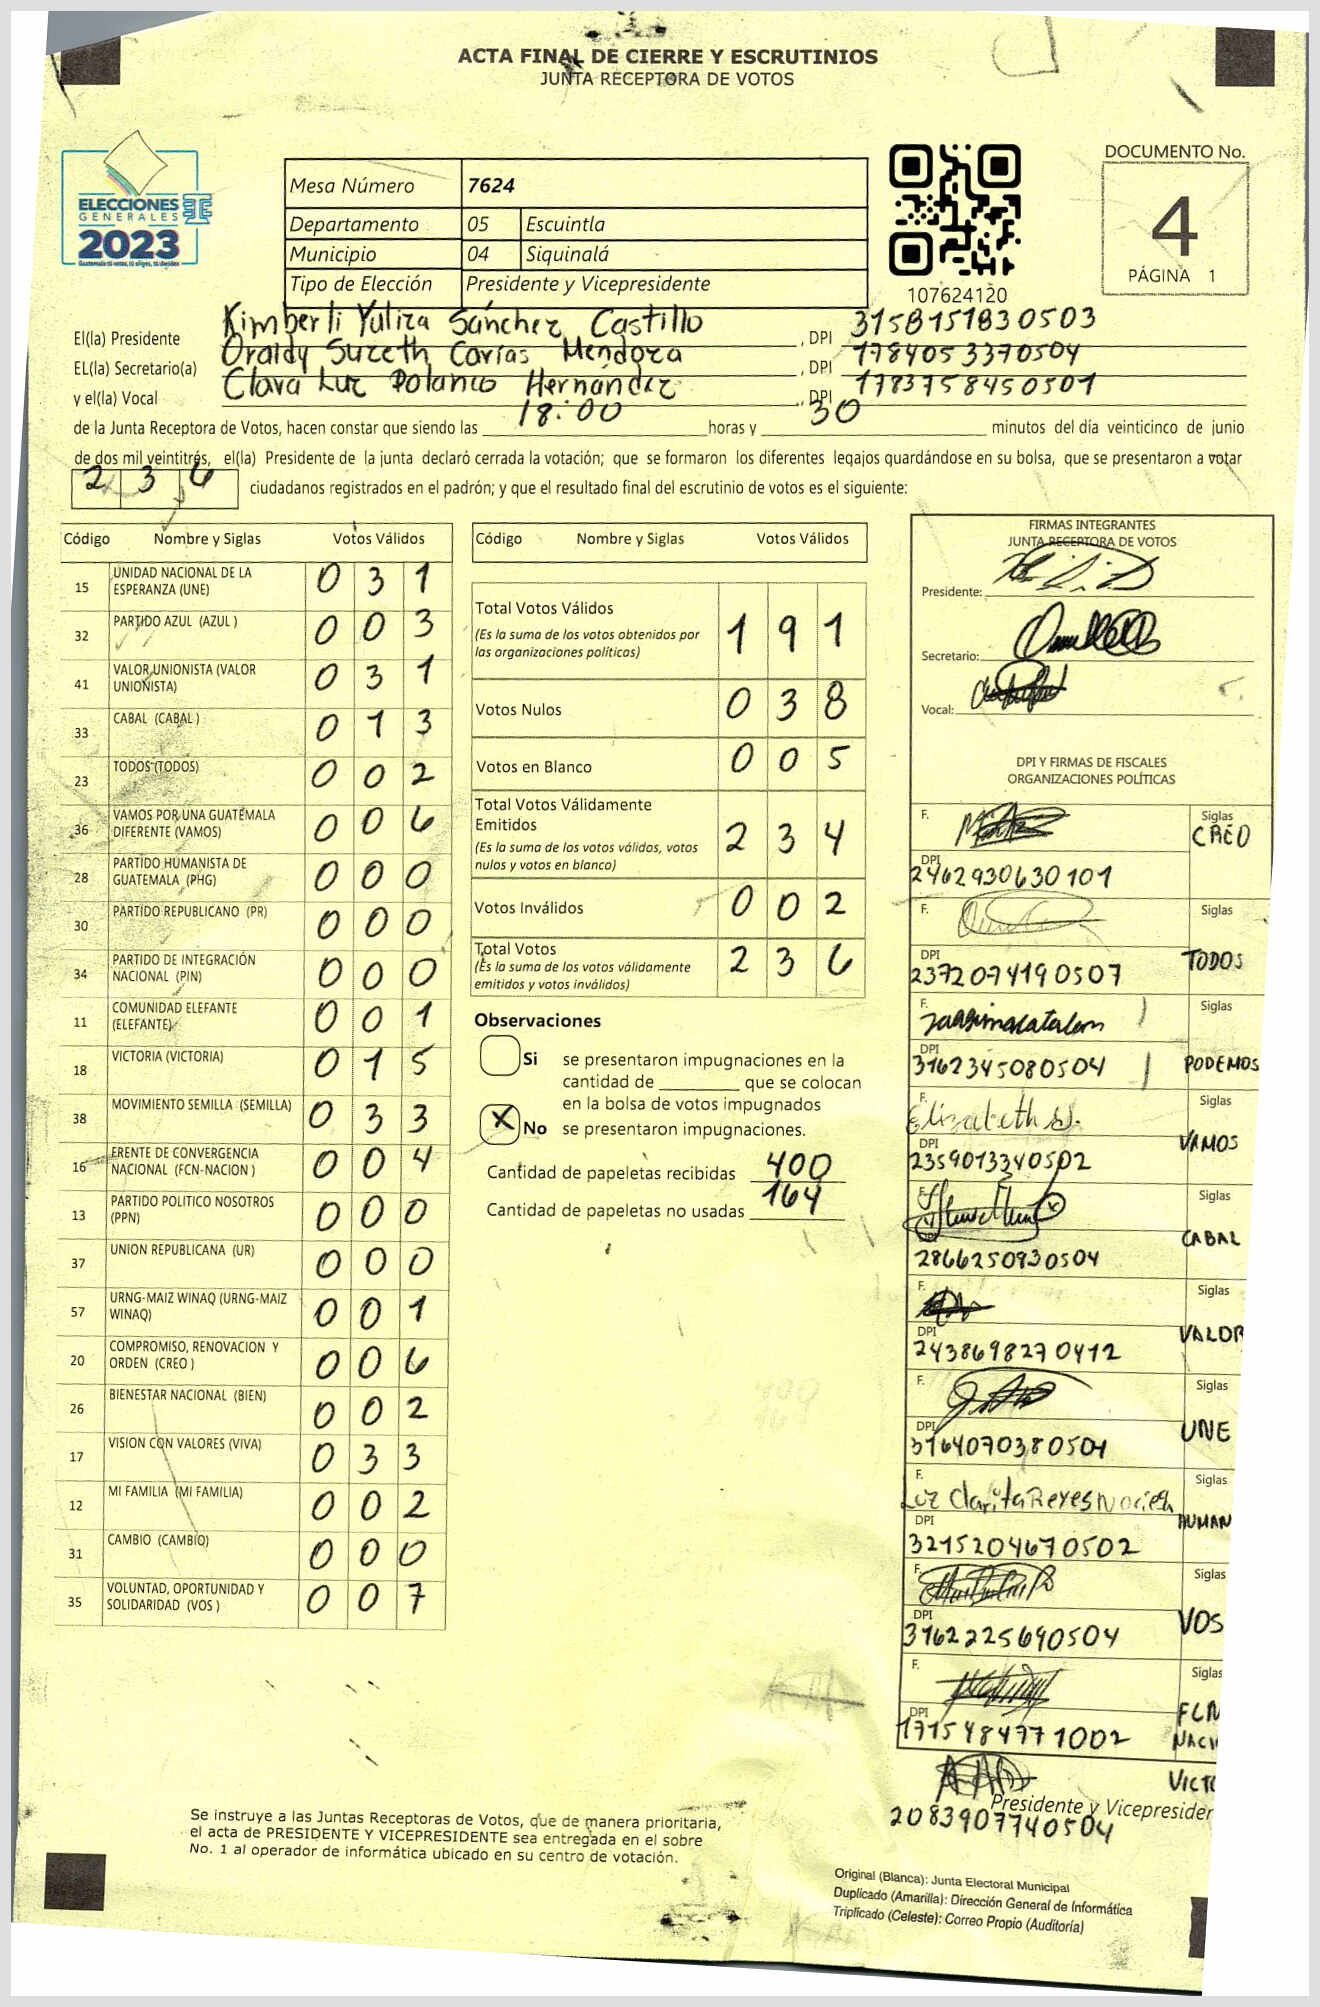 ACTA FINAL DE CIERRE Y ESCRUTINIOS
JUNTA RECEPTORA DE VOTOS
ELECCIONES
GENERALES
2023
Mesa Número 7624
Departamento 05 Escuintla
Municipio 04 Siquinalá
Tipo de Elección Presidente y Vicepresidente
107624120
DOCUMENTO No.
4
PÁGINA 1
El(la) Presidente Kimberli Yuliza Sánchez Castillo, DPI 3158151830503
EL(la) Secretario(a) Oraldy Suzeth Carías Mendoza, DPI 1784053370504
y el(la) Vocal Clara Luz Polanco Hernández, DPI 1783758450501
de la Junta Receptora de Votos, hacen constar que siendo las 18:00 horas y 30 minutos del día veinticinco de junio
de dos mil veintitrés, el(la) Presidente de la junta declaró cerrada la votación; que se formaron los diferentes legajos guardándose en su bolsa, que se presentaron a votar
236 ciudadanos registrados en el padrón; y que el resultado final del escrutinio de votos es el siguiente:
Código Nombre y Siglas Votos Válidos
15 UNIDAD NACIONAL DE LA ESPERANZA (UNE) 0 3 1
32 PARTIDO AZUL (AZUL ) 0 0 3
41 VALOR UNIONISTA (VALOR UNIONISTA) 0 3 1
33 CABAL (CABAL ) 0 1 3
23 TODOS (TODOS) 0 0 2
36 VAMOS POR UNA GUATEMALA DIFERENTE (VAMOS) 0 0 6
28 PARTIDO HUMANISTA DE GUATEMALA (PHG) 0 0 0
30 PARTIDO REPUBLICANO (PR) 0 0 0
34 PARTIDO DE INTEGRACIÓN NACIONAL (PIN) 0 0 0
11 COMUNIDAD ELEFANTE (ELEFANTE) 0 0 1
18 VICTORIA (VICTORIA) 0 1 5
38 MOVIMIENTO SEMILLA (SEMILLA) 0 3 3
16 FRENTE DE CONVERGENCIA NACIONAL (FCN-NACION ) 0 0 4
13 PARTIDO POLITICO NOSOTROS (PPN) 0 0 0
37 UNION REPUBLICANA (UR) 0 0 0
57 URNG-MAIZ WINAQ (URNG-MAIZ WINAQ) 0 0 1
20 COMPROMISO, RENOVACION Y ORDEN (CREO ) 0 0 6
26 BIENESTAR NACIONAL (BIEN) 0 0 2
17 VISION CON VALORES (VIVA) 0 3 3
12 MI FAMILIA (MI FAMILIA) 0 0 2
31 CAMBIO (CAMBIO) 0 0 0
35 VOLUNTAD, OPORTUNIDAD Y SOLIDARIDAD (VOS ) 0 0 7
Código Nombre y Siglas Votos Válidos
Total Votos Válidos 1 9 1
(Es la suma de los votos obtenidos por
las organizaciones políticas)
Votos Nulos 0 3 8
Votos en Blanco 0 0 5
Total Votos Válidamente
Emitidos 2 3 4
(Es la suma de los votos válidos, votos
nulos y votos en blanco)
Votos Inválidos 0 0 2
Total Votos 2 3 6
(Es la suma de los votos válidamente
emitidos y votos inválidos)
Observaciones
Si se presentaron impugnaciones en la
cantidad de ________ que se colocan
en la bolsa de votos impugnados
X No se presentaron impugnaciones.
Cantidad de papeletas recibidas 400
Cantidad de papeletas no usadas 164
FIRMAS INTEGRANTES
JUNTA RECEPTORA DE VOTOS
Presidente:
Secretario:
Vocal:
DPI Y FIRMAS DE FISCALES
ORGANIZACIONES POLÍTICAS
F. Siglas CREO
DPI 2462930630101
F. Siglas TODOS
DPI 2372074190507
F. Siglas PODEMOS
DPI 3162345080504
F. Elizabeth Siglas VAMOS
DPI 2359013340502
F. Siglas CABAL
DPI 2866250930504
F. Siglas VALOR
DPI 2438698270412
F. Siglas UNE
DPI 3164070380501
F. Luz Clarita Reyes Siglas HUMAN
DPI 3215204670502
F. Siglas VOS
DPI 3162225690504
F. Siglas FCN NACI
DPI 1715484771002
VICTO
Presidente y Vicepresiden
2083907740504
Se instruye a las Juntas Receptoras de Votos, que de manera prioritaria,
el acta de PRESIDENTE Y VICEPRESIDENTE sea entregada en el sobre
No. 1 al operador de informática ubicado en su centro de votación.
Original (Blanca): Junta Electoral Municipal
Duplicado (Amarilla): Dirección General de Informática
Triplicado (Celeste): Correo Propio (Auditoría)